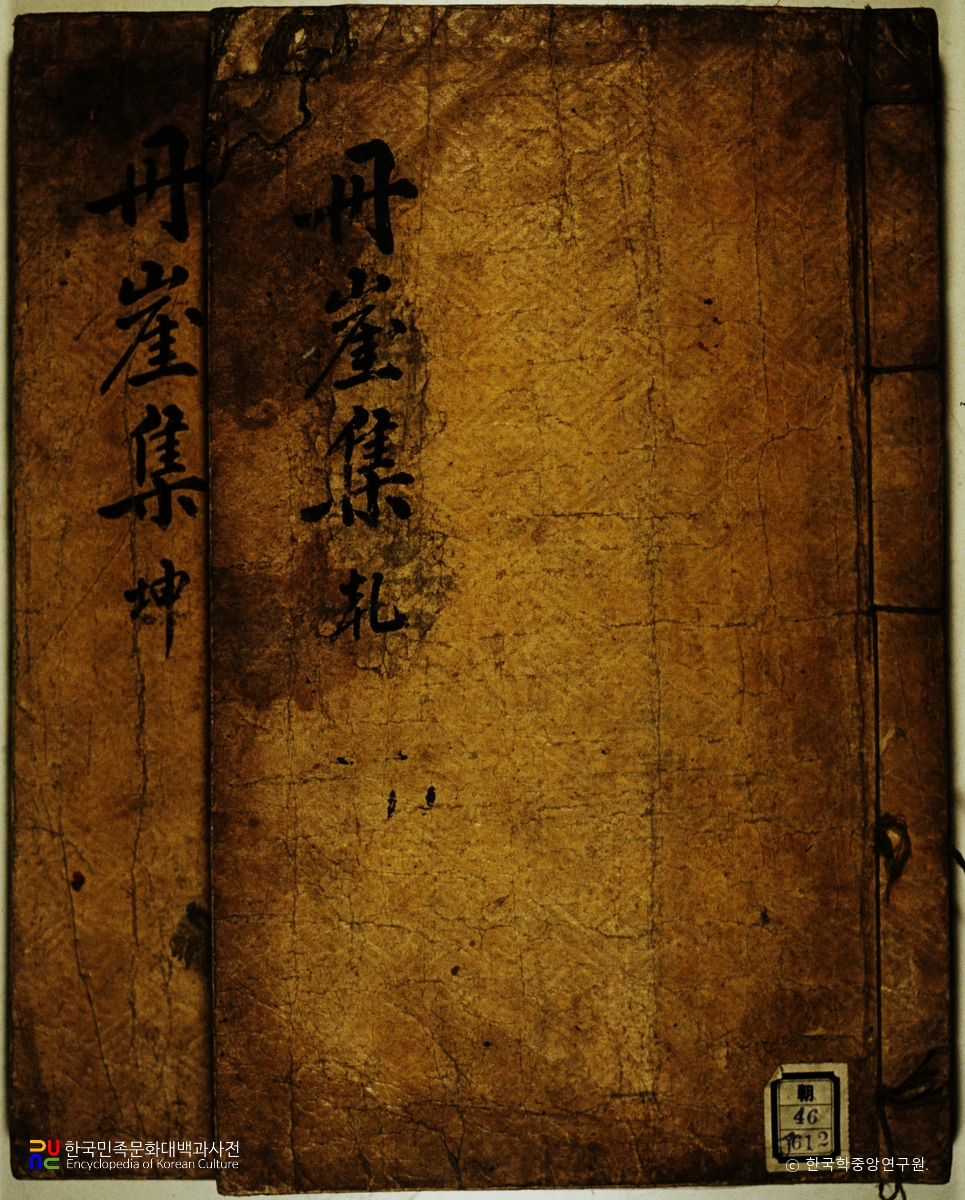 丹崖集 乹
丹崖集 坤
朝
46
612
한국민족문화대백과사전
Encyclopedia of Korean Culture
© 한국학중앙연구원.